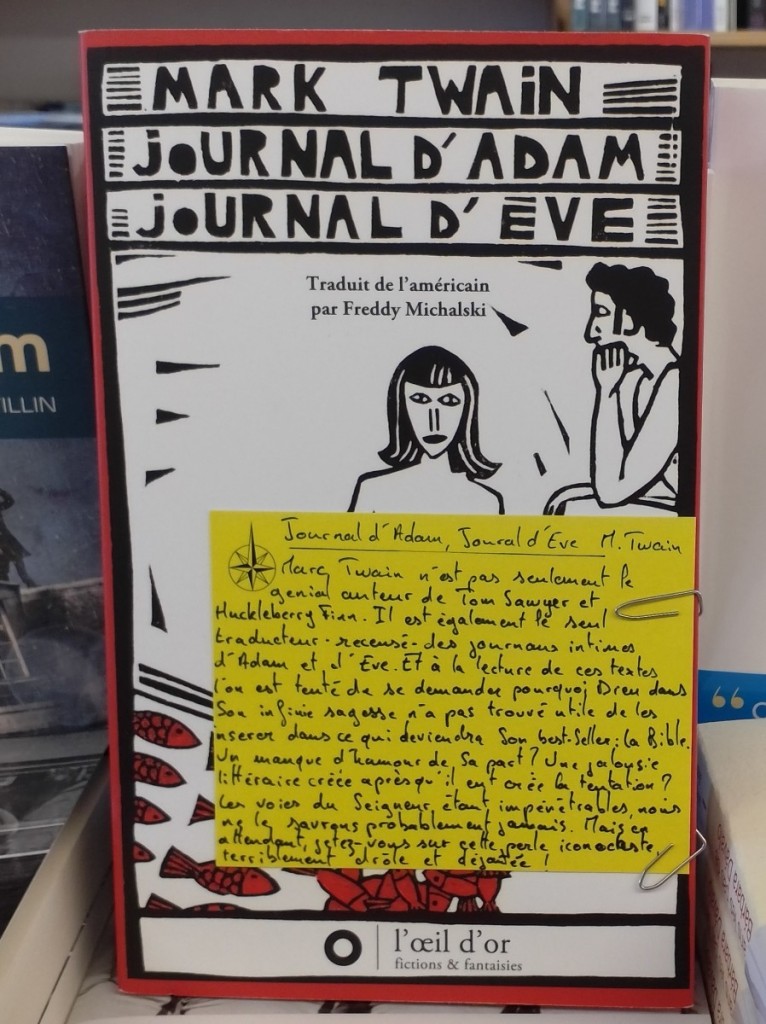 MARK TWAIN
JOURNAL D'ADAM
JOURNAL D'ÈVE
Traduit de l'américain
par Freddy Michalski
m
ILLIN
Journal d'Adam, Joural d'Eve M. Twain
Marc Twain n'est pas seulement le
genial auteur de Tom Sawyer et
Huckleberry Finn. Il est également le seul
traducteur-recensé-des journaux intimes
d'Adam et d'Eve. Et à la lecture de ces textes
l'on est tenté de se demander pourquoi Dieu dans
Son infinie sagesse n'a pas trouvé utile de les
inserer dans ce qui deviendra Son best-Seller: la Bible.
Un manque d'humour de Sa part? Une jalousie
littéraire créée après qu'il eut créé la tentation?
Les voies du Seigneur étant impénétrables, nous
ne le saurons probablement jamais. Mais en
attendant, jetez-vous sur cette perle iconoclaste,
terriblement drôle et déjantée!
l'œil d'or
fictions & fantaisies